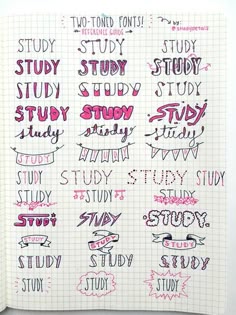 TWO-TONED FONTS!
REFERENCE GUIDE
by:
STUDY STUDY STUDY
STUDY STUDY STUDY
STUDY STUDY STUDY
STUDY STUDY STUDY
study study study
STUDY STUDY STUDY
STUDY STUDY STUDY STUDY
STUDY STUDY STUDY
STUDY STUDY STUDY.
STUDY STUDY STUDY
STUDY STUDY STUDY
STUDY STUDY STUDY